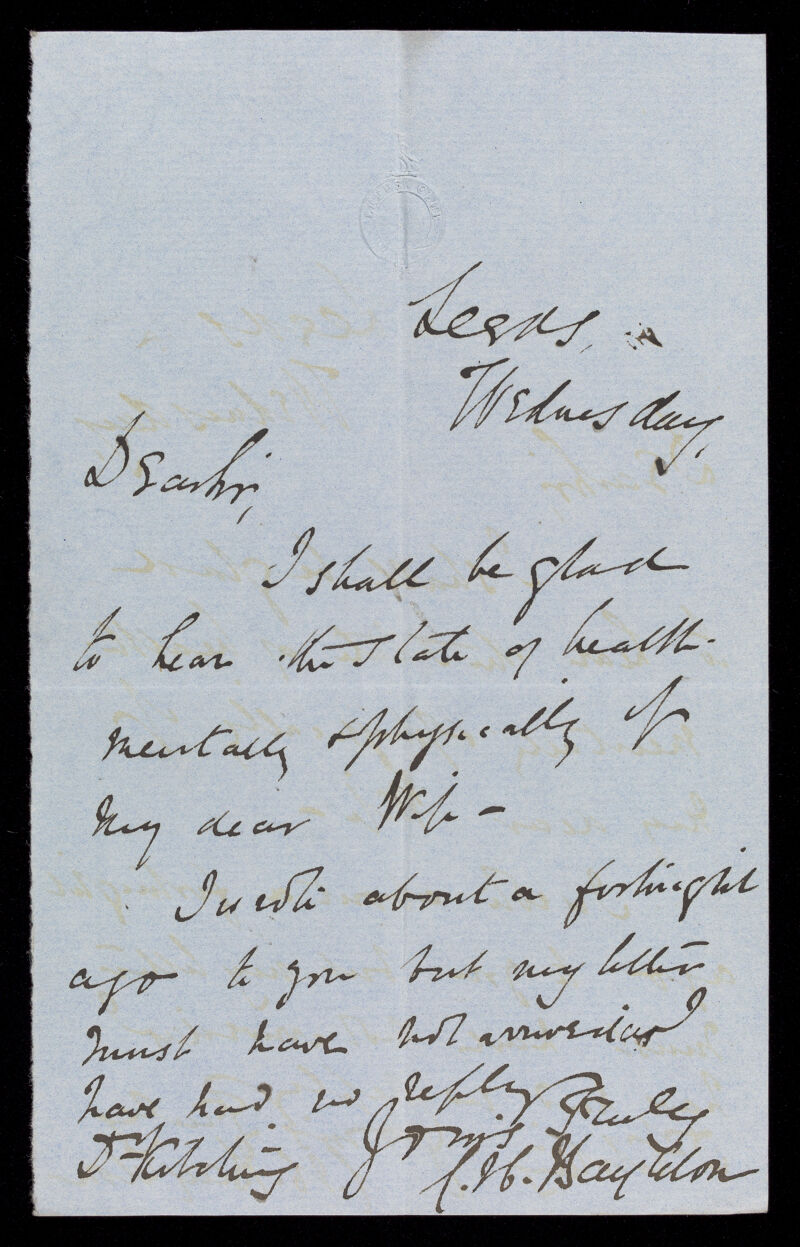 Leeds,
Wednesday,
Dear Sir,
I shall be glad
to hear the state of health
mentally & physically of
my dear Wife –
I wrote about a fortnight
ago to you but my letter
must have not arrived as I
have had no reply
Yours Truly
Dr Kitching